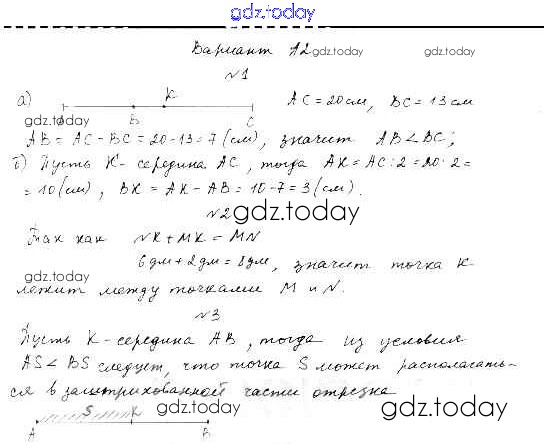 gdz.today
Вариант А2 gdz.today gdz.today
№1
а) K AC = 20 см, BC = 13 см
gdz.today A B C
AB = AC - BC = 20 - 13 = 7 (см), значит AB < BC;
б) Пусть K - середина AC, тогда AK = AC : 2 = 20 : 2 =
= 10 (см), BK = AK - AB = 10 - 7 = 3 (см).
№2 gdz.today
Так как NK + MK = MN
gdz.today 6 дм + 2 дм = 8 дм, значит точка K
лежит между точками M и N.
№3
Пусть K - середина AB, тогда из условия
AS < BS следует, что точка S может располагать-
ся в заштрихованной части отрезка
S K gdz.today gdz.today
A B